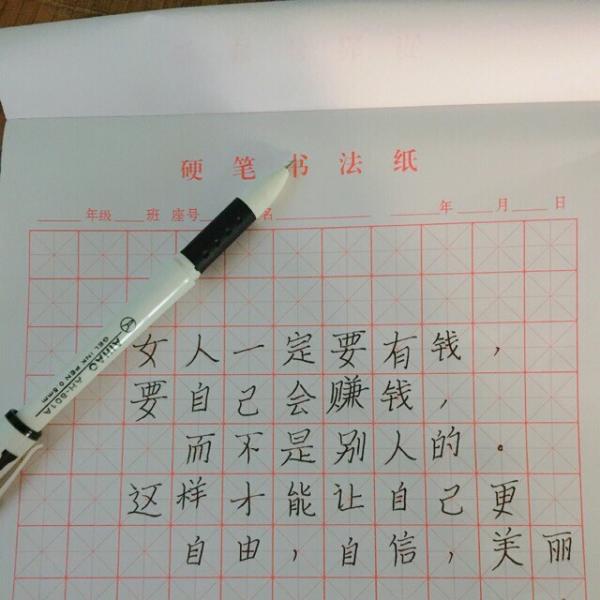 硬笔书法纸
年级 班 座号 名 年 月 日
女人一定要有钱，
要自己会赚钱，
而不是别人的。
这样才能让自己更
自由，自信，美丽
AIHAO